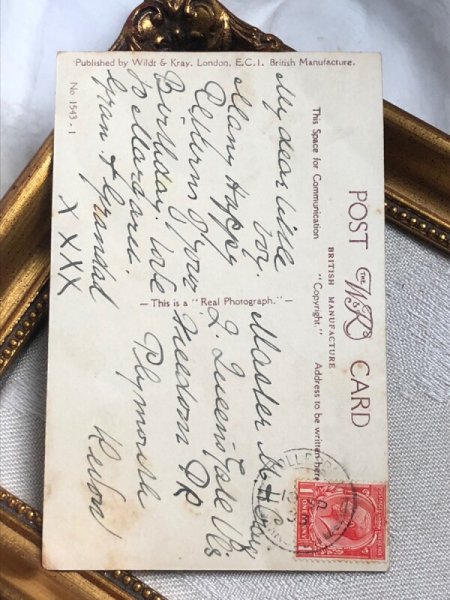 Published by Wildt & Kray, London, E.C.1. British Manufacture.
No. 1543-1
POST CARD
THE W&K'S
BRITISH MANUFACTURE
"Copyright."
This Space for Communication
Address to be written here
My dear little
Many Happy
Returns of your
Birthday. love
Gran. & Grandad
X X X X
This is a "Real Photograph."
Master
2. Queens Gate Vls
Freedom Pk
Plymouth
ONE PENNY